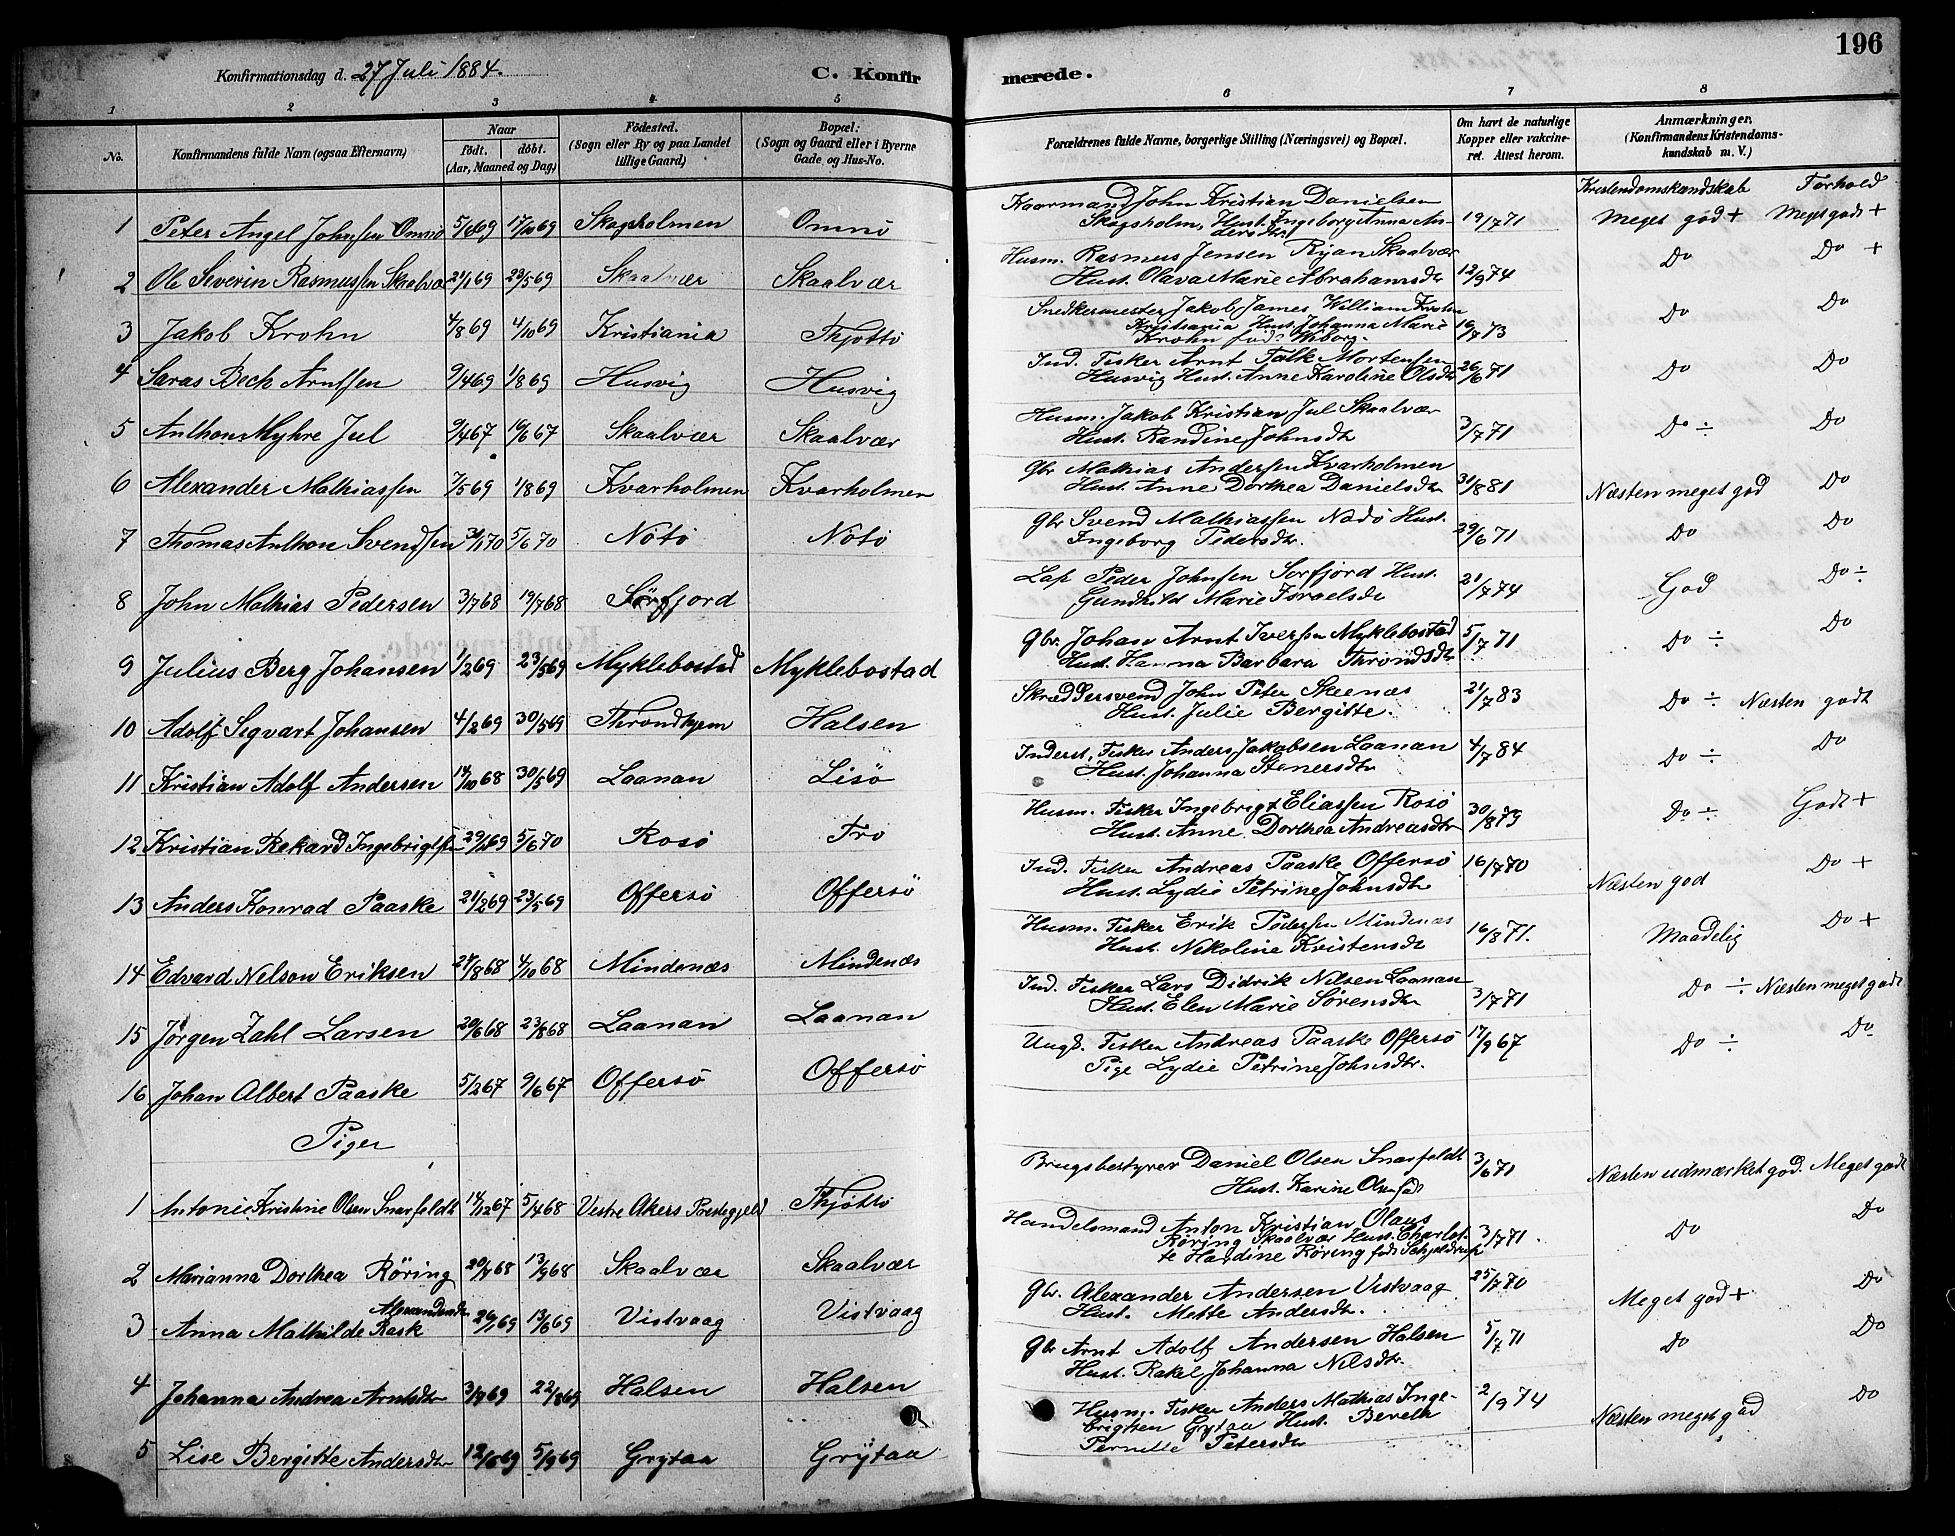 196
Konfirmationsdag d. 27 Juli 1884. C. Konfirmerede.
1 2 3 4 5 6 7 8
No. Konfirmandens fulde Navn (ogsaa Efternavn) Naar født. døbt. (Aar, Maaned og Dag) Fødested. (Sogn eller By og paa Landet tillige Gaard) Bopæl: (Sogn og Gaard eller i Byerne Gade og Hus-No. Forældrenes fulde Navne, borgerlige Stilling (Næringsvei) og Bopæl. Om havt de naturlige Kopper eller vakcineret. Attest herom. Anmærkninger, (Konfirmandens Kristendomskundskab m. V.)
Kristendomskundskab Forhold
1 Peter Angel Johnsen Omnö 5/6 69 17/10 69 Skogsholmen Omnö
Kaarmand John Kristian Danielsen
Skogsholm, Hust. Ingeborg Anna Andersdtr 19/7 71 Meget god + Meget godt +
2 Ole Severin Rasmussen Skaalvær 21/1 69 23/5 69 Skaalvær Skaalvær
Husm. Rasmus Jensen Ryan Skaalvær
Hust. Olava Marie Abrahamsdtr 12/9 74 Do Do +
3 Jakob Krohn 4/8 69 4/10 69 Kristiania Thjøttö
Snedkermester Jakob James William Krohn
Kristiania Hust. Johanna Marie
Krohn fød Wiborg. 16/7 73 Do Do
4 Saras Bech Arntsen 9/4 69 1/8 69 Husvig Husvig
Ind. Fisker Arnt Falk Mortensen
Husvig Hust. Anne Karoline Olsdtr 26/6 71 Do Do
5 Anthon Myhre Jul 9/4 67 10/6 67 Skaalvær Skaalvær
Husm. Jakob Kristian Jul Skaalvær
Hust. Randine Johnsdtr 3/7 71 Do ÷ Do
6 Alexander Mathiassen 7/5 69 1/8 69 Kvarholmen Kvarholmen
Gbr Mathias Andersen Kvarholmen
Hust. Anne Dorthea Danielsdtr 31/8 81 Næsten meget god Do
7 Thomas Anthon Svendsen 31/1 70 5/6 70 Nötö Nötö
Gbr Svend Mathiassen Nadö Hust.
Ingeborg Pedersdtr. 29/6 71 Do Do
8 John Mathias Pedersen 3/7 68 19/7 68 Sörfjord
Lap Peder Johnsen Sorfjord Hust.
Gundhild Marie Israelsdr 21/7 74 God Do ÷
9 Julius Berg Johansen 1/2 69 23/5 69 Myklebostad Myklebostad
Gbr. Johan Arnt Iversen Myklebostad
Hust. Hanna Barbara Thröndsdtr 5/7 71 Do ÷ Do
10 Adolf Segvart Johansen 4/2 69 30/5 69 Throndhjem Halsen
Skræddersvend John Peter Skeenæs
Hust. Julie Bergitte. 21/7 83 Do ÷ Næsten godt
11 Kristian Adolf Andersen 14/10 68 30/5 69 Laanan Lisö
Inderst, Fisker Anders Jakobsen Laanan
Hust. Johanna Stenersdtr 4/7 84 Do ÷ Do
12 Kristian Rekard Ingebrigtsen 29/1 69 5/6 70 Rosö Tro
Husm. Fisker Ingebrigt Eliassen Rosö
Hust. Anne Dorthea Andreasdtr 30/8 79 Do ÷ Godt +
13 Anders Konrad Paaske 21/2 69 23/5 69 Offersö Offersö
Ind. Fisker Andreas Paaske Offersö
Hust. Lydie Petrine Johnsdtr 16/7 70 Næsten god Do +
14 Edvard Nelson Eriksen 24/8 68 4/10 68 Mindenæs Mindenæs
Husm. Fisker Erik Pedersen Mindenæs
Hust. Nikoline Kristensdr 16/8 71. Maadelig Do +
15 Jørgen Zahl Larsen 20/6 68 23/8 68 Laanan Laanan
Ind. Fisker Lars Didrik Nilsen Laanan
Hust. Elen Marie Sörensdtr 3/7 71 Do ÷ Næsten meget godt
16 Johan Albert Paaske 5/2 67 9/6 67 Offersö Offersö
Ungk. Fisker Andreas Paaske Offersö
Pige Lydie Petrine Johnsdtr. 17/9 67 Do ÷ Do
Piger
1 Antonie Kristine Olsen Snarfeldt 14/12 67 5/4 68 Vestre Akers Præstegjeld Thjøttö
Brugsbestyrer Daniel Olsen Snarfeldt
Hust. Karine Olsen fød 3/6 71 Næsten udmærket god. Meget godt
2 Marianna Dorthea Röring 20/7 68 13/9 68 Skaalvær Skaalvær
Handelsmand Anton Kristian Olaus
Röring Skaalvær Hust. Charlotte Hardine Röring fød Schjeldrup 3/7 71. Do Do
3 Anna Mathilde Alexandersdtr Rask 26/1 69 13/6 69 Vistvaag Vistvaag
Gbr. Alexander Andersen Vistvaag
Hust. Mette Andersdtr. 25/7 70 Meget god + Do
4 Johanna Andrea Arntsdtr 3/7 69 22/8 69 Halsen Halsen
Gbr Arnt Adolf Andersen Halsen
Hust. Rakel Johanna Nilsdtr. 5/7 71 Do Do
5 Lise Bergitte Andersdtr 12/6 69 5/9 69 Grytaa Grytaa
Husm. Fisker Anders Mathias Ingebrigtsen Grytaa Hust. Bereth
Pernille Petersdtr 2/9 74 Næsten meget god Do